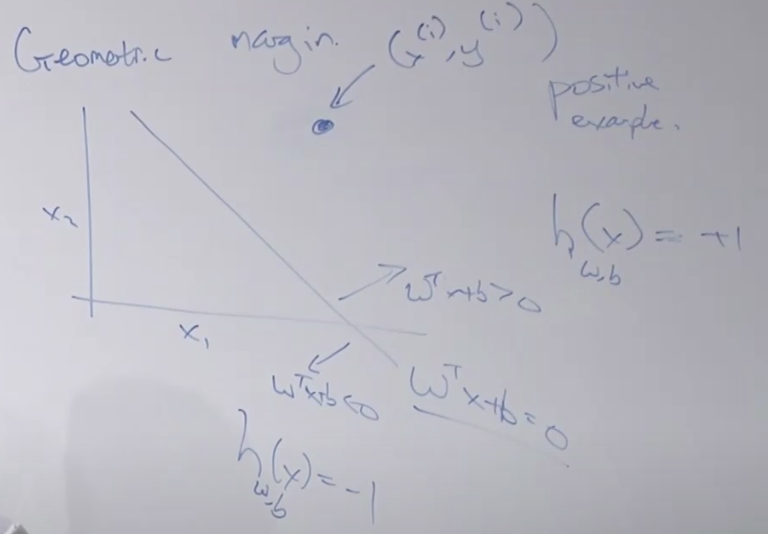 Geometric margin. (x^(i), y^(i))
positive
example.
x₂
h_w,b(x) = +1
wᵀx+b>0
x₁
wᵀx+b<0
wᵀx+b=0
h_w,b(x) = -1